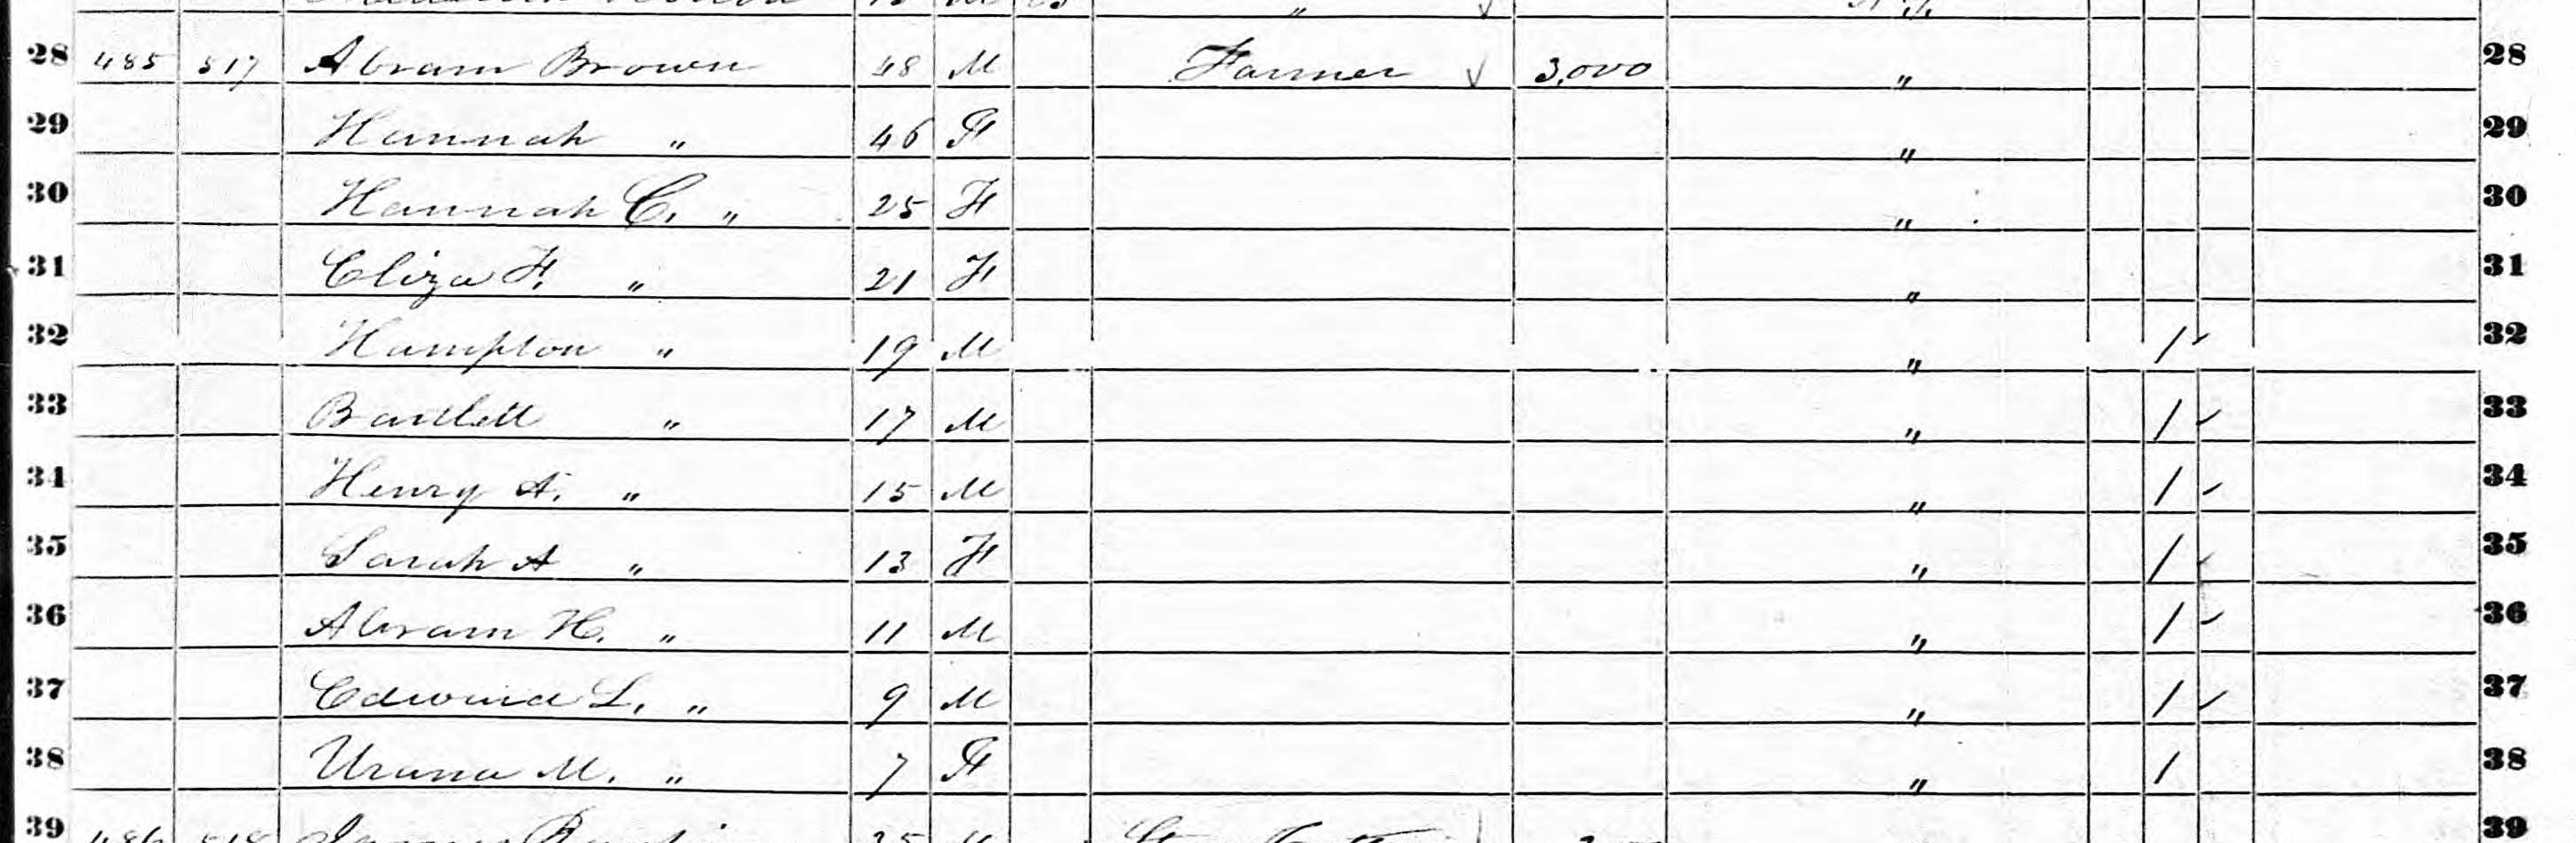 28 485 517 Abram Brown 48 M Farmer 3,000 " 28
29 Hannah " 46 F " 29
30 Hannah C. " 25 F " 30
31 Eliza F. " 21 F " 31
32 Hampton " 19 M " 1 32
33 Bartlett " 17 M " 1 33
34 Henry A. " 15 M " 1 34
35 Sarah A " 13 F " 1 35
36 Abram H. " 11 M " 1 36
37 Edwind L. " 9 M " 1 37
38 Urana M. " 7 F " 1 38
39 486 518 39